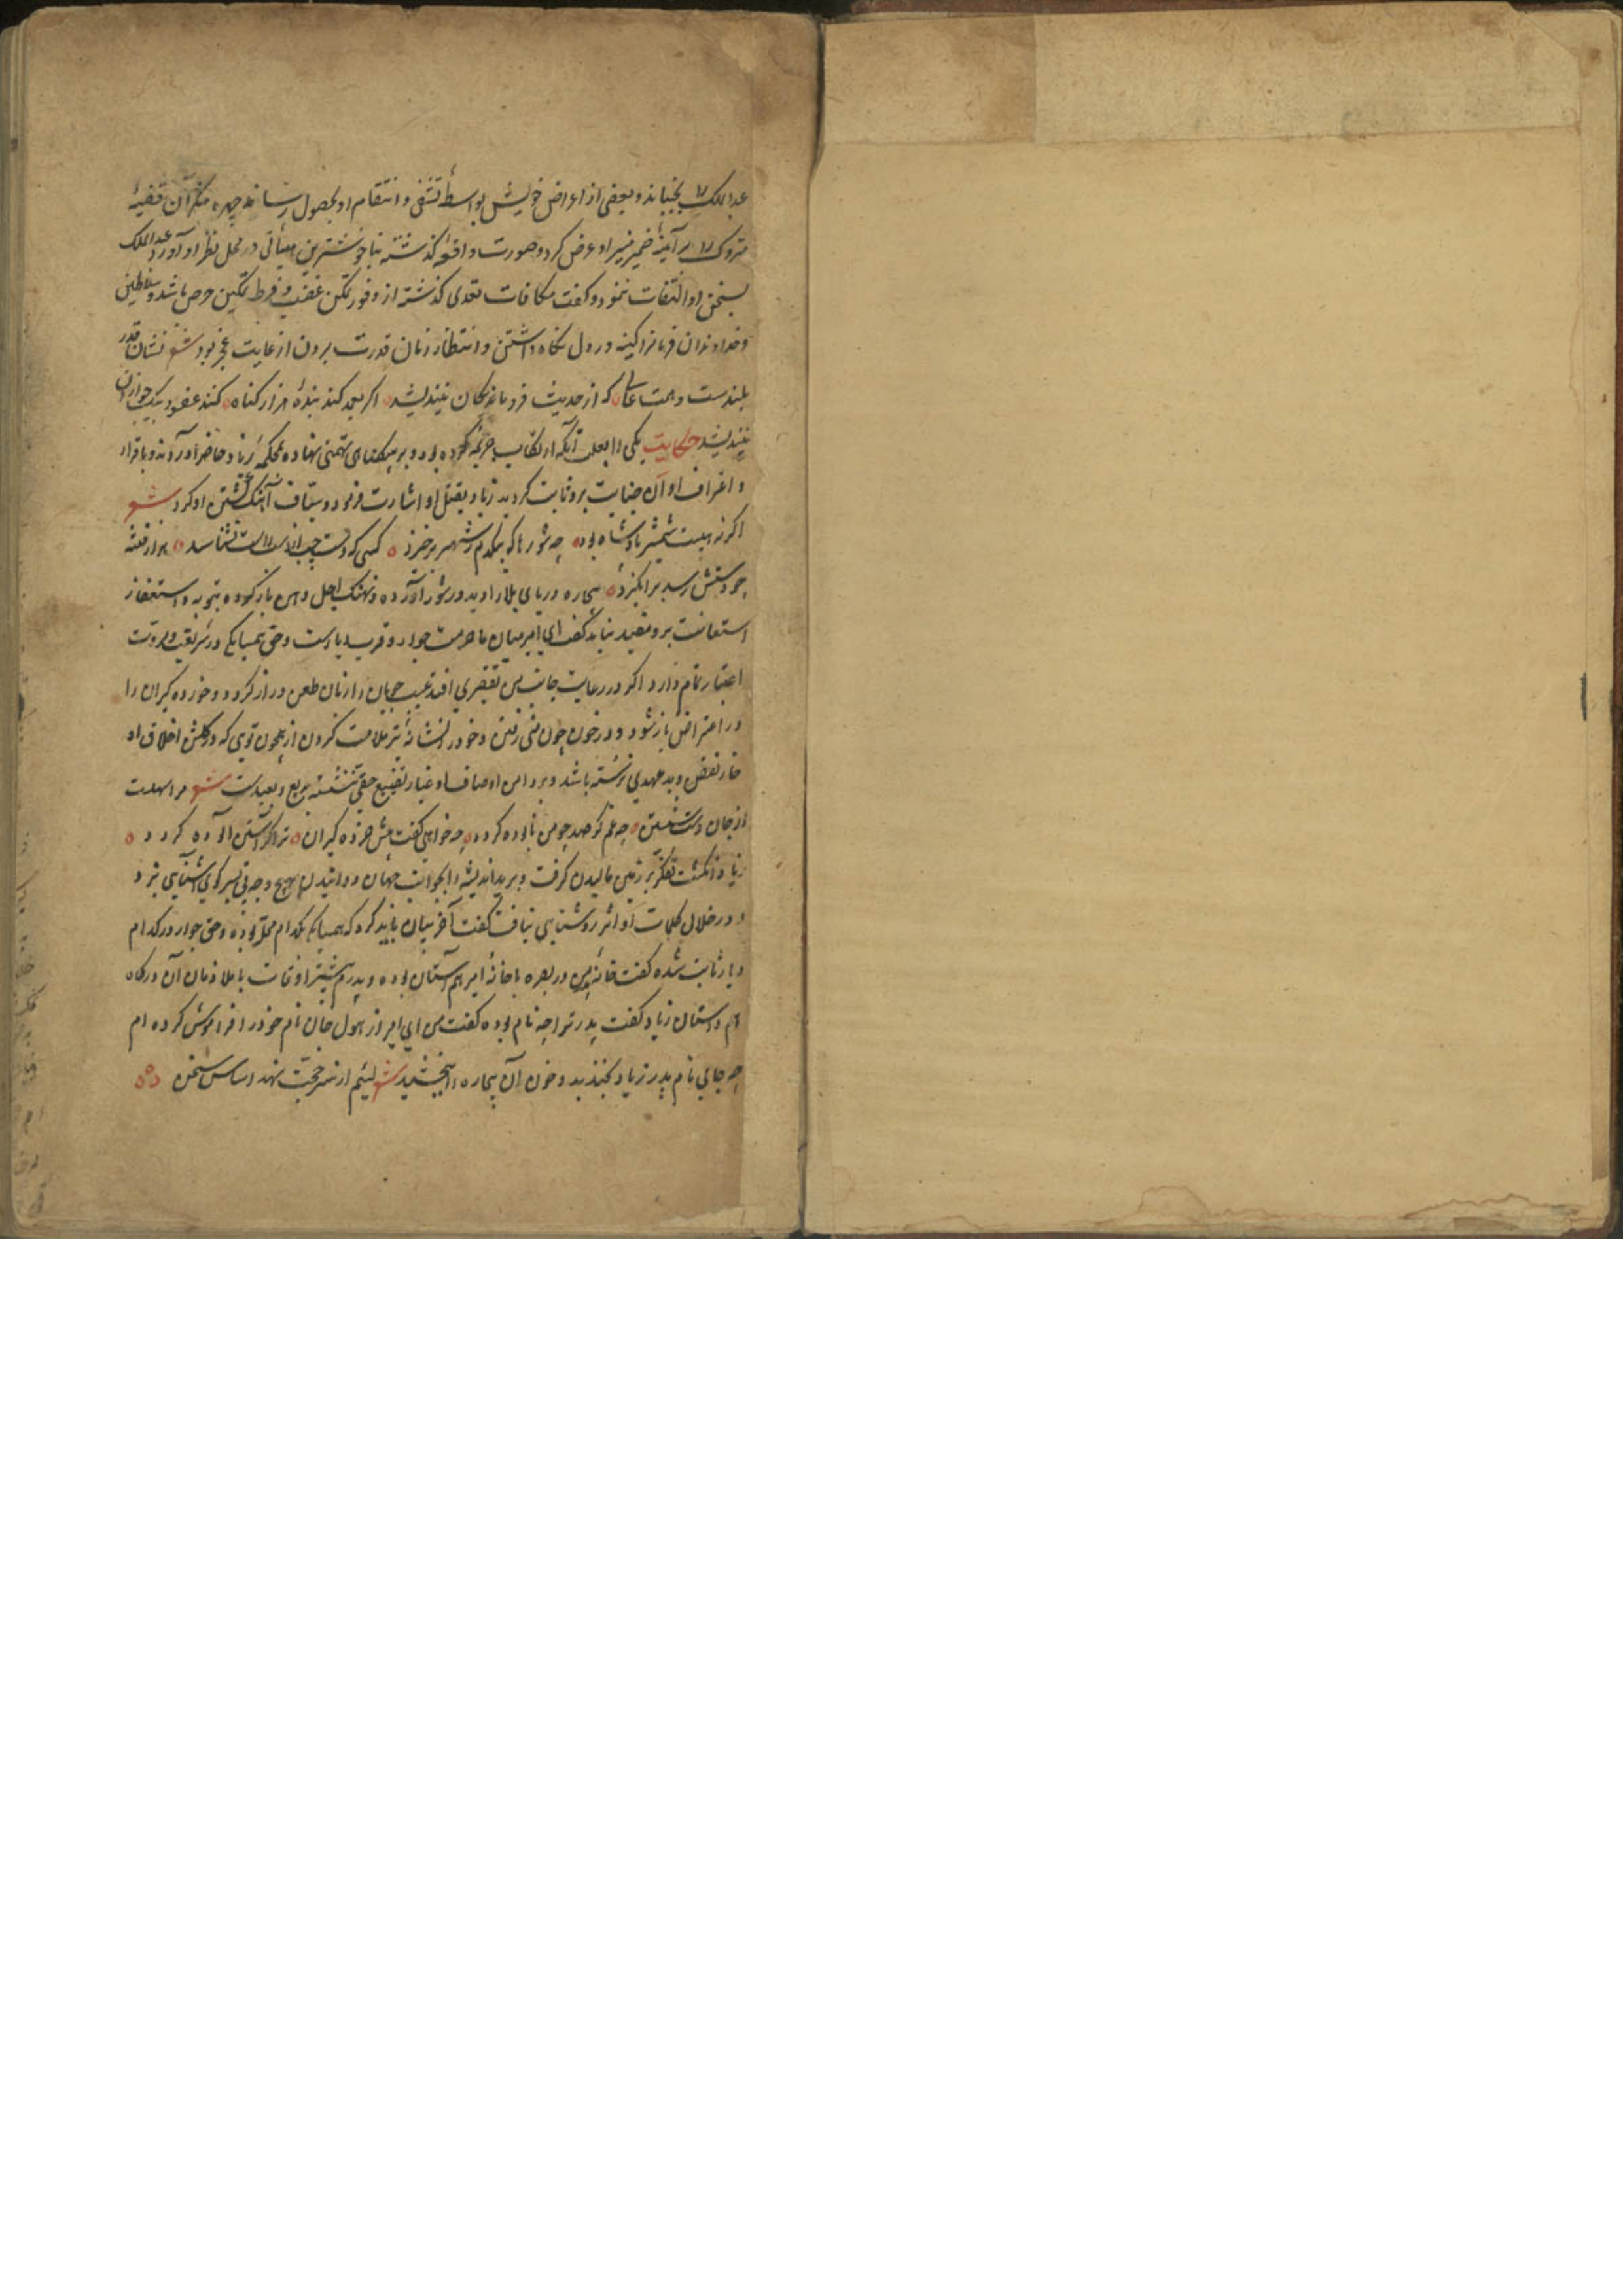 عبدالملک را بجنباند و بعضی از اعراض خویش بواسطهٔ تشفی و انتقام او بحصول رساند چهره منکر آن قضیهٔ
متروک را بر آینهٔ ضمیر منیر او عرض کرد و صورت واقعهٔ گذشته بناخوشترین هیأتی در محل نظر او آورد عبدالملک
بسخن او التفات ننمود و گفت مکافات تعدی گذشته از وفور تمکن غضب و فرط تمکین حرص باشد و سلاطین
و خداوندان فرمانرا کینه در دل نگاه داشتن و انتظار زمان قدرت بردن از غایت عجز بود شعر نشان قدر
بلندست و همت عالی که از حدیث فروماندگان نیندیشد اگر بعمد کند بندهٔ هزار گناه کند عفو و بیک جو از آن
نیندیشد حکایت یکی را بعلت آنکه ارتکاب جریمهٔ کرده بود و بر بیگناهی تهمتی نهاده بمحکمهٔ زیاد حاضر آوردند و باقرار
و اعتراف او آن جنایت برو ثابت گردید زیاد بقتل او اشارت فرمود و سیاف آهنگ کشتن او کرد شعر
اگر نه هیبت شمشیر پادشاه بود چه شورها که بیکدم ز شهر برخیزد کسی که دست چپ از دست راست نشناسد هزار فتنه
چو دستش رسد برانگیزد بیچاره دریای بلا را دید در شور آورده و نهنگ اجل دهن باز کرده بتوبه و استغفار
استعانت برو مفید نیامد گفت ای امیر میان ما حرمت جوار و قرب دیارست و حق همسایگی در شریعت و مروت
اعتبار تمام دارد اگر در رعایت جانب من تقصیری افتد عیب جویان را زبان طعن دراز گردد و خورده گیران را
در اعتراض باز شود و در خون چون منی رفتن و خود را نشانهٔ تیر ملامت کردن از همچون تویی که در گلشن اخلاق او
خار نقض و بدعهدی نرسته باشد و بر دامن اوصاف او غبار تضییع حقی ننشسته بدیع و بعیدست شعر مرا سهلست
از جان دست شستن چه غم گر صد چو من نابوده گردد چه خواهی گفت پیش خرده گیران ترا گر آستین آلوده گردد
زیاد انگشت تفکر بر زمین مالیدن گرفت و برید اندیشه را بجوانب جهان دوانیدن بهیچ وجه پی بسر کوی آشنایی نبرد
و در خلال کلمات او اثر روشنایی نیافت گفت آخر بیان باید کرد که همسایگی بکدام محل بوده و حق جوار در کدام
دیار ثابت شده گفت خانهٔ پدر من در بصره با خانهٔ امیر هم آستان بوده و پدرم بیشتر اوقات با ملازمان آن درگاه
هم داستان زیاد گفت پدر ترا چه نام بوده گفت من ای امیر از هول جان نام خود را فراموش کرده ام
چه جای نام پدر زیاد بخندید و خون آن بیچاره را ببخشید شعر لئیم از سر حجت نهد اساس سخن